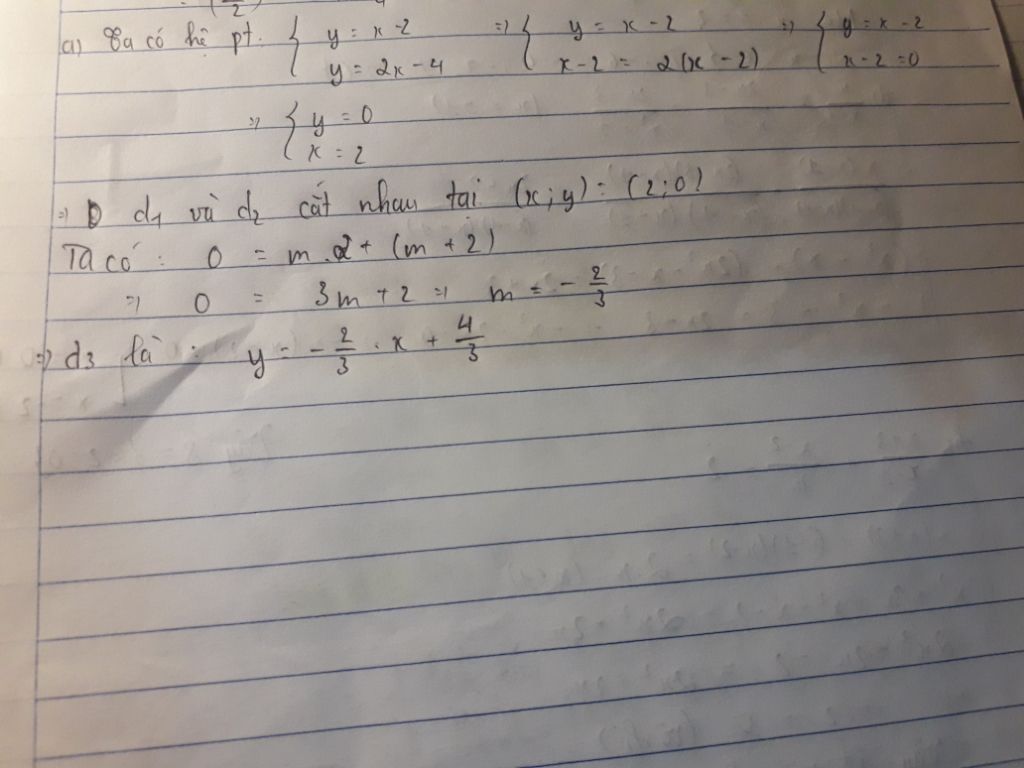 a) Ta có hệ pt: { y = x - 2 => { y = x - 2 => { y = x - 2
y = 2x - 4 x - 2 = 2(x - 2) x - 2 = 0
=> { y = 0
x = 2
=> d₁ và d₂ cắt nhau tại (x; y) = (2; 0)
Ta có : 0 = m . 2 + (m + 2)
=> 0 = 3m + 2 => m = - 2/3
=> d3 là : y = - 2/3 . x + 4/3